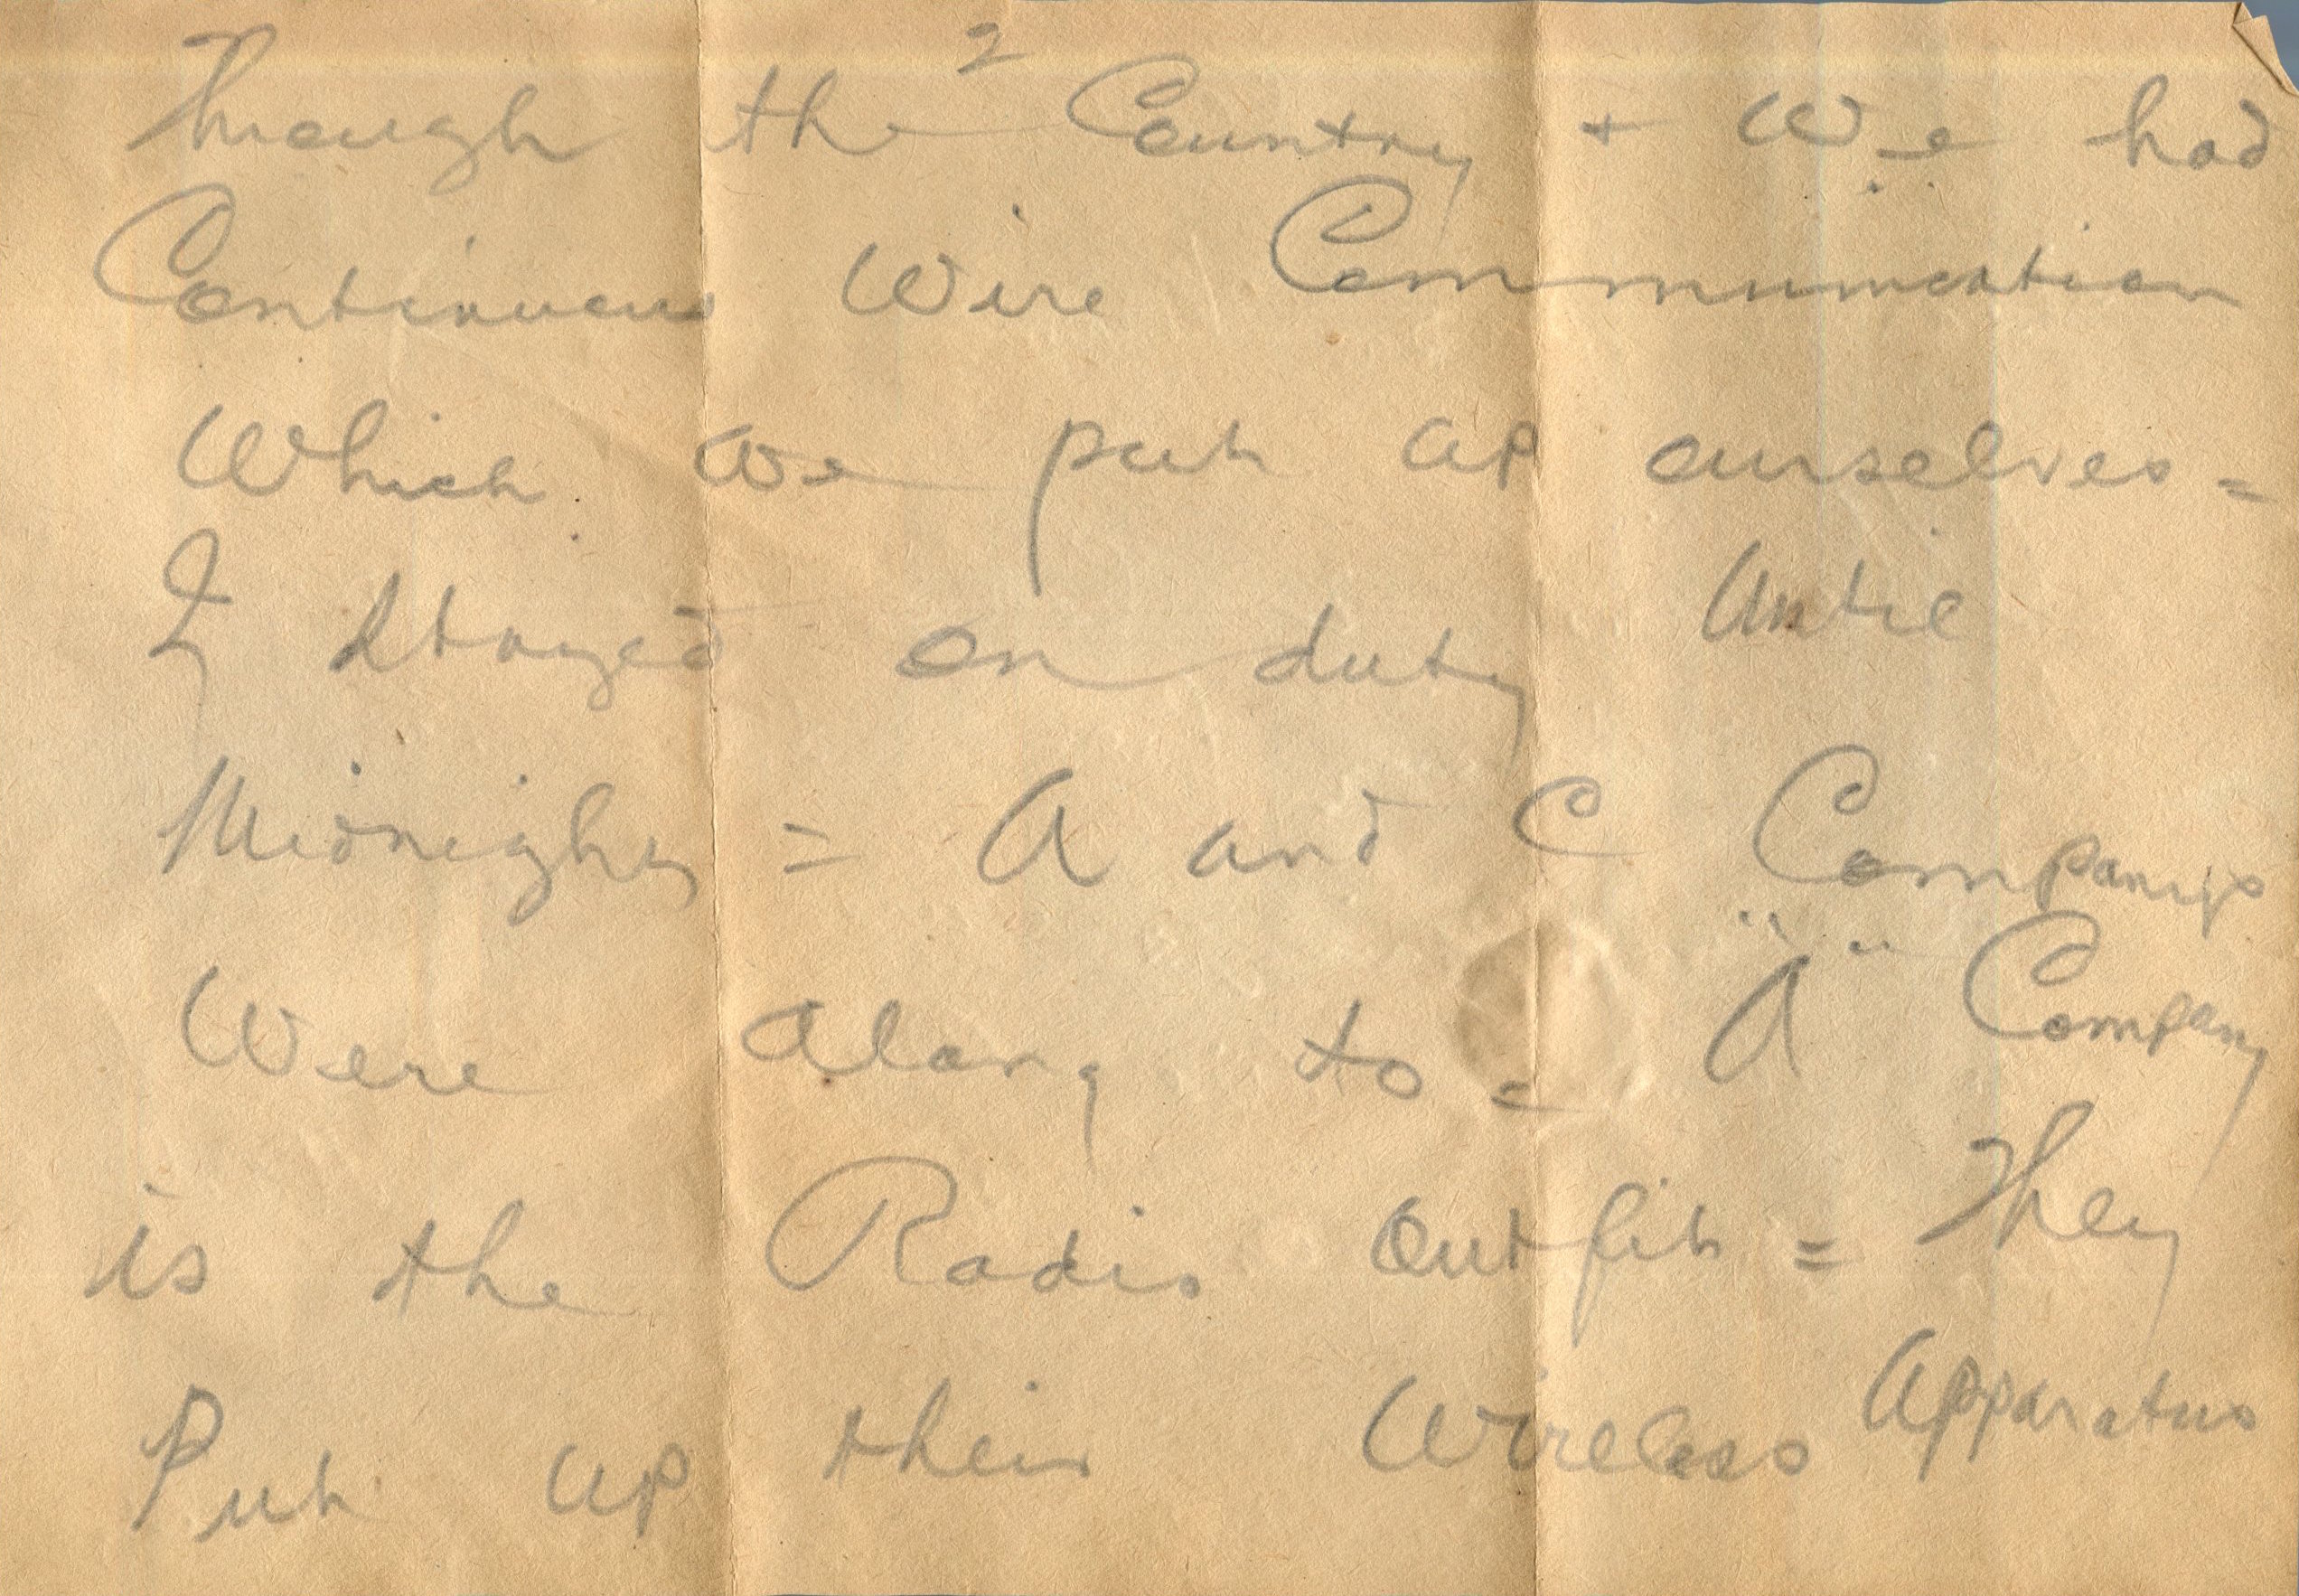 2
Through the Country + We had
Continuous Wire Communication
Which we put up ourselves =
I stayed on duty Until
Midnight = A and C Companys
Were along to = "A" Company
is the Radio Outfit = They
Put up their Wireless Apparatus